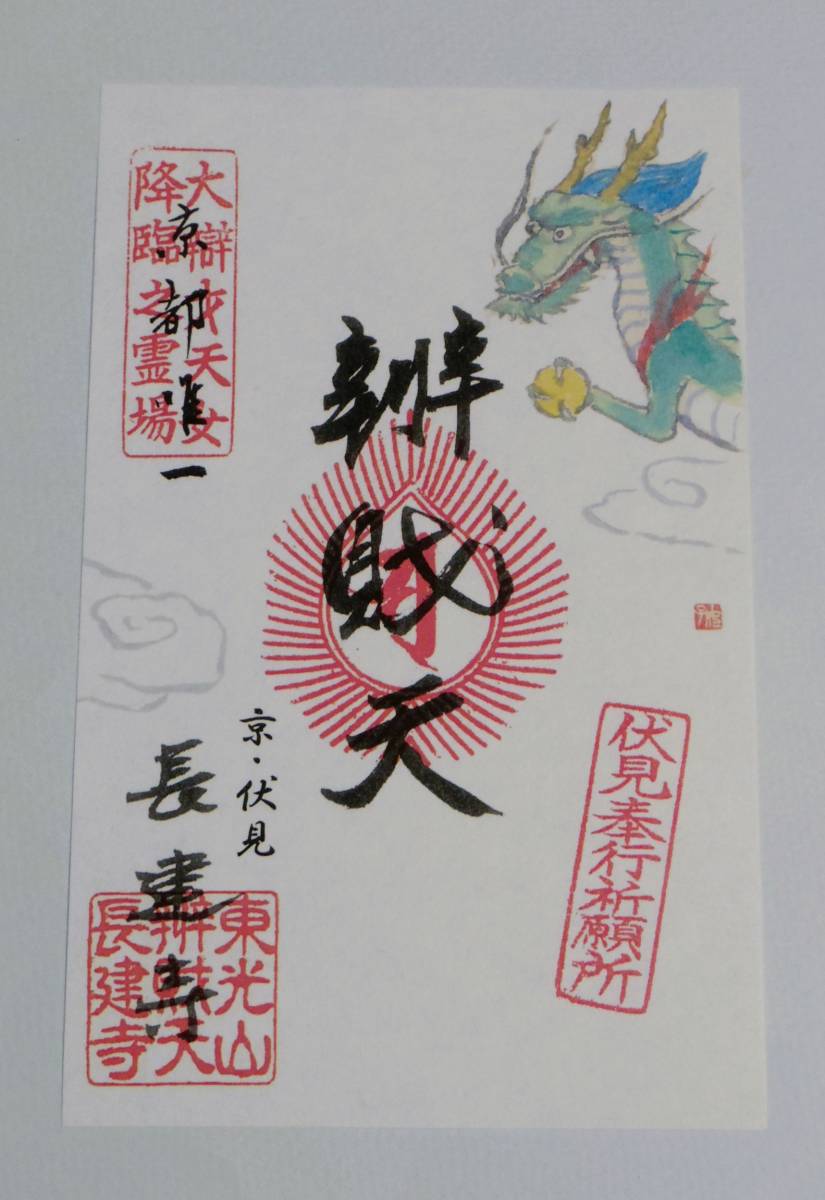 伏見奉行祈願所
辨財天
京・伏見
大辯才天女
降臨之霊場
京都唯一
長建寺
東光山
辨財天
長建寺